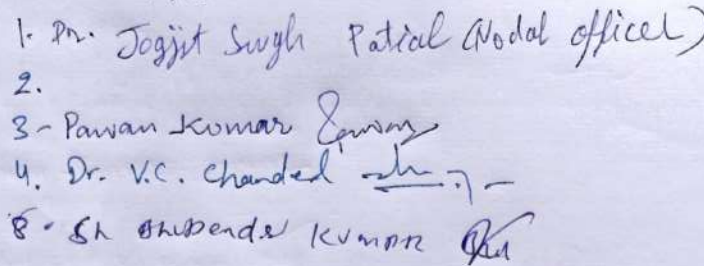 1. Dr. Jogjit Singh Patial (Nodal officer)
2.
3- Pawan Kumar
4. Dr. V.C. Chandel
5. Sh Kumar